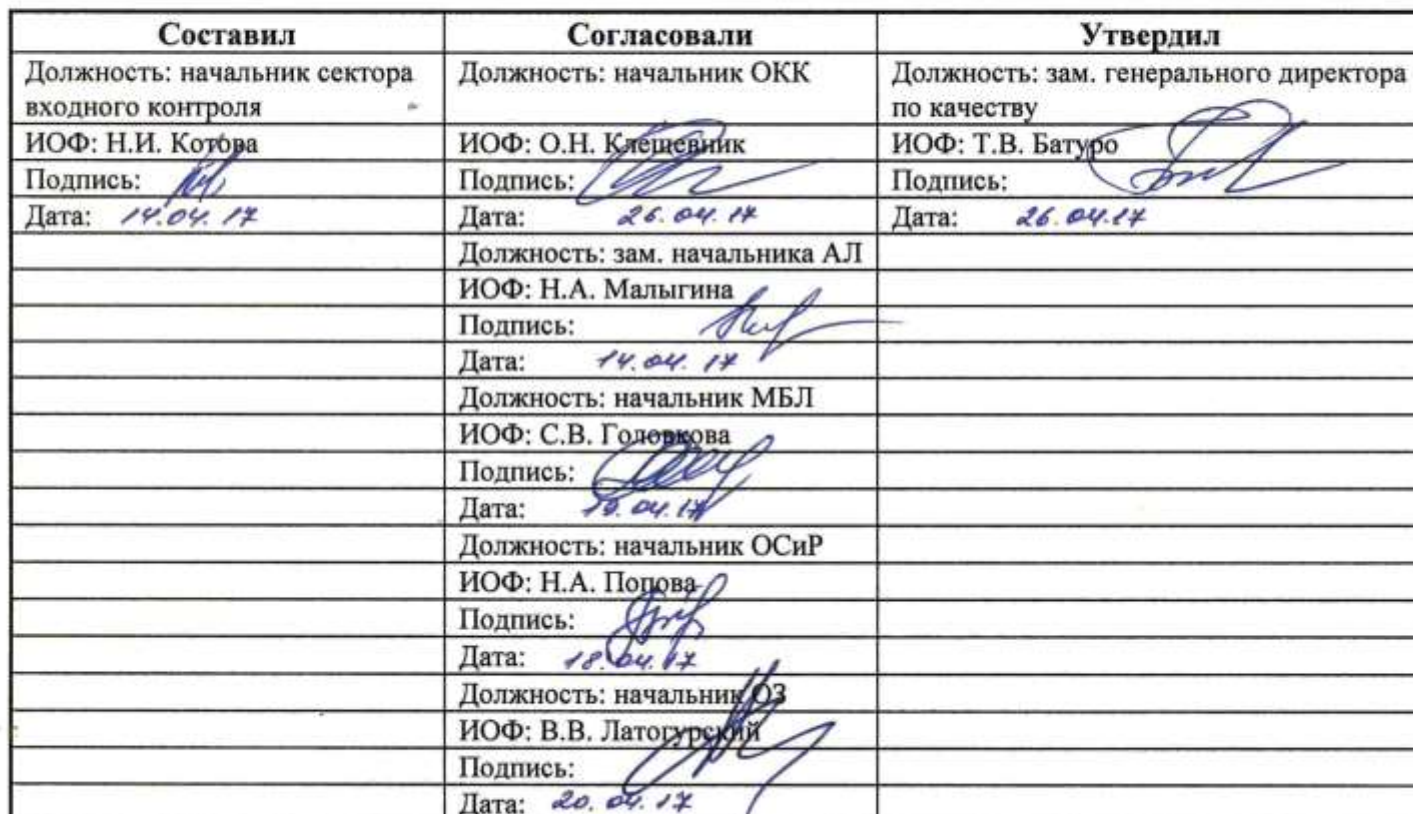 Составил Согласовали Утвердил
Должность: начальник сектора входного контроля Должность: начальник ОКК Должность: зам. генерального директора по качеству
ИОФ: Н.И. Котова ИОФ: О.Н. Клещевник ИОФ: Т.В. Батуро
Подпись: Подпись: Подпись:
Дата: 14.04.17 Дата: 26.04.17 Дата: 26.04.17
Должность: зам. начальника АЛ
ИОФ: Н.А. Малыгина
Подпись:
Дата: 14.04.17
Должность: начальник МБЛ
ИОФ: С.В. Головкова
Подпись:
Дата: 19.04.17
Должность: начальник ОСиР
ИОФ: Н.А. Попова
Подпись:
Дата: 18.04.17
Должность: начальник ОЗ
ИОФ: В.В. Латогурский
Подпись:
Дата: 20.04.17